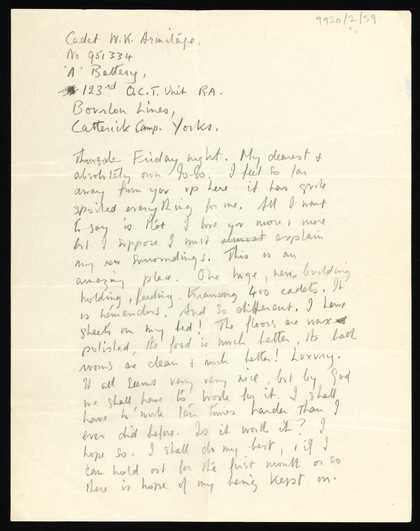 9920/2/59
Cadet W.K. Armitage.
No 951334
'A' Battery,
123rd O.C.T. Unit RA.
Bourlon Lines,
Catterick Camp. Yorks.
Friday night. My dearest &
absolutely own I feel so far
away from you up here it has quite
spoiled everything for me. All I want
to say is that I love you more & more
but I suppose I must almost explain
my surroundings. This is an
amazing place. One huge, new building
holding, feeding 400 cadets. It
is tremendous. And so different. I have
sheets on my bed! The floors are wax
polished, the food is much better, the bath
rooms are clean & much better! Luxury.
It all seems very very nice, but by God
we shall have to work for it. I shall
have to work ten times harder than I
ever did before. Is it worth it? I
hope so. I shall do my best, & if I
can hold out for the first month or so
there is hope of my being kept on.